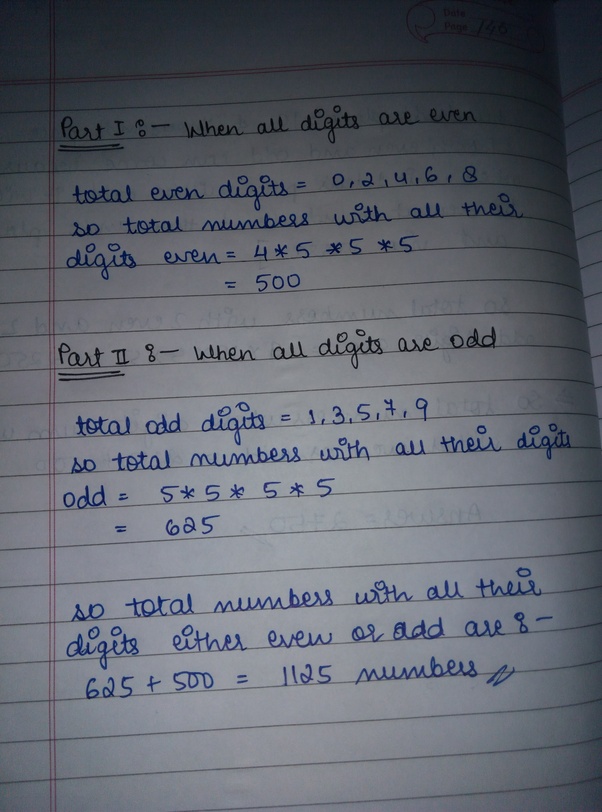 Date
Page 146
Part I :- When all digits are even
total even digits = 0, 2, 4, 6, 8
so total numbers with all their
digits even = 4 * 5 * 5 * 5
= 500
Part II :- When all digits are odd
total odd digits = 1, 3, 5, 7, 9
so total numbers with all their digits
odd = 5 * 5 * 5 * 5
= 625
so total numbers with all their
digits either even or add are :-
625 + 500 = 1125 numbers